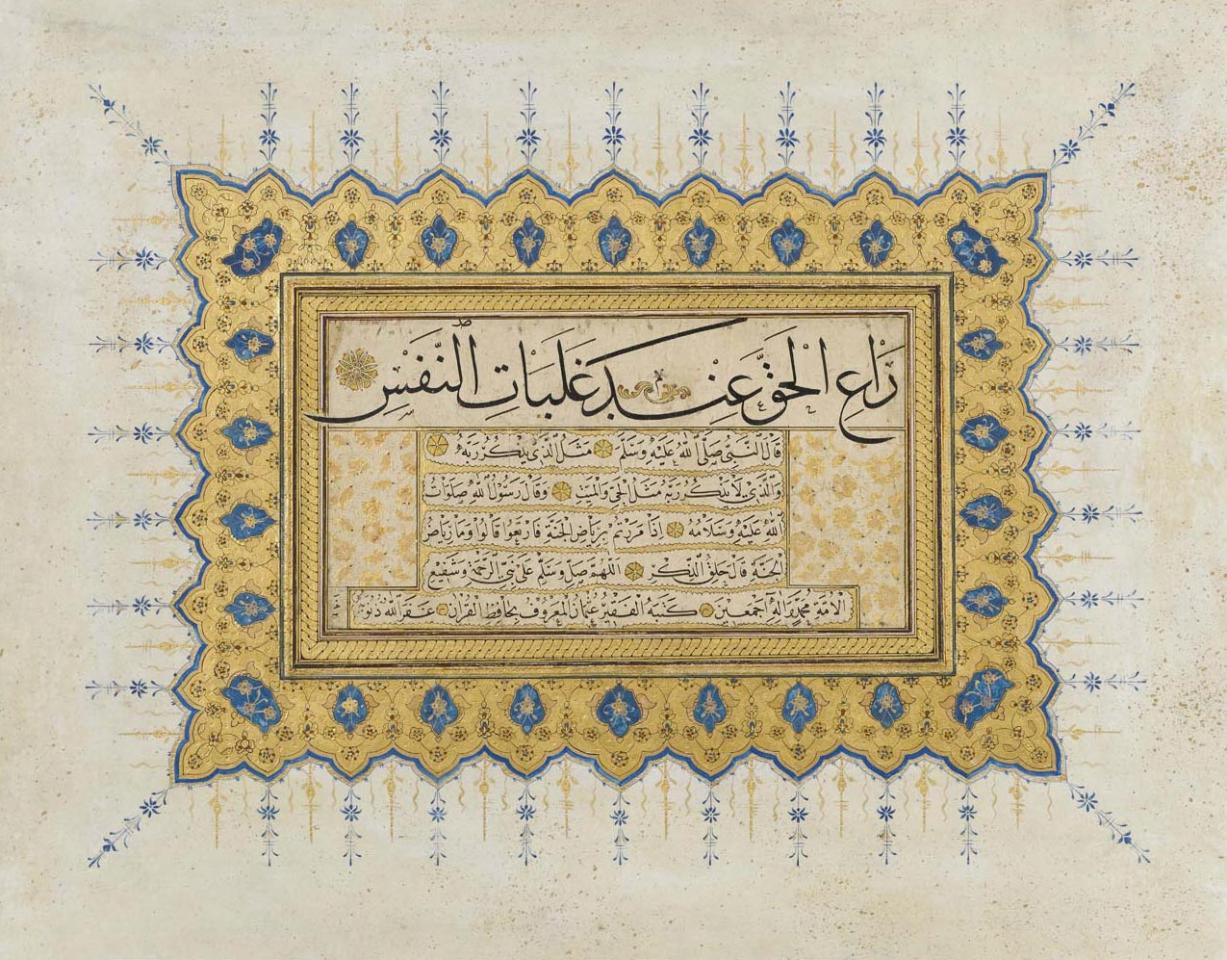 رَاعِ الْحَقَّ عِنْدَ غَلَبَاتِ النَّفْسِ
قَالَ النَّبِيُّ صَلَّى اللهُ عَلَيْهِ وَسَلَّمَ مَثَلُ الَّذِي يَذْكُرُ رَبَّهُ
وَالَّذِي لَا يَذْكُرُ رَبَّهُ مَثَلُ الْحَيِّ وَالْمَيِّتِ وَقَالَ رَسُولُ اللهِ صَلَوَاتُ
اللهِ عَلَيْهِ وَسَلَامُهُ إِذَا مَرَرْتُمْ بِرِيَاضِ الْجَنَّةِ فَارْتَعُوا قَالُوا وَمَا رِيَاضُ
الْجَنَّةِ قَالَ حِلَقُ الذِّكْرِ اللَّهُمَّ صَلِّ وَسَلِّمْ عَلَى نَبِيِّ الرَّحْمَةِ وَشَفِيعِ
الْأُمَّةِ مُحَمَّدٍ وَآلِهِ أَجْمَعِينَ كَتَبَهُ الْفَقِيرُ عُثْمَانُ الْمَعْرُوفُ بِحَافِظِ الْقُرْآنِ غَفَرَ اللهُ ذُنُوبَهُ